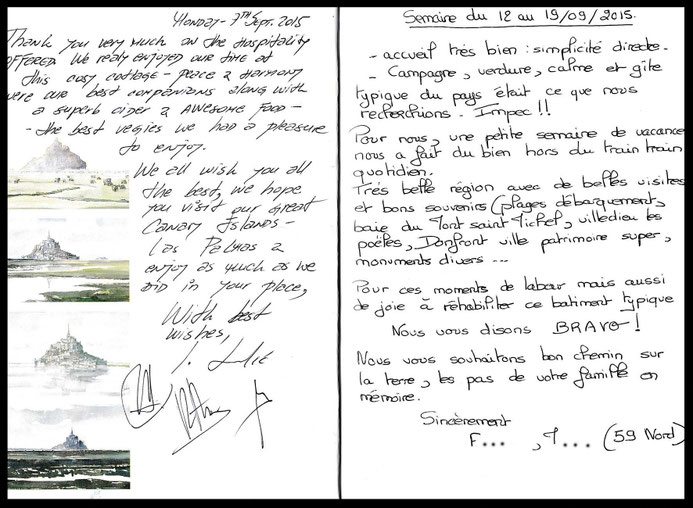 Monday - 7TH Sept. 2015
Thank you very much on the Hospitality
offered. We realy enjoyed our time at
this cosy cottage - peace & harmony
were our best companions along with
a superb cider & awesome food -
- the best vegies we had a pleasure
to enjoy.
We all wish you all
the best, we hope
you visit our great
Canary Islands -
Las Palmas &
enjoy as much as we
did in your place,
With best
wishes,
Semaine du 12 au 19/09/2015.
- accueil très bien : simplicité directe.
- Campagne, verdure, calme et gîte
typique du pays était ce que nous
recherchions. Impec!!
Pour nous, une petite semaine de vacance
nous a fait du bien hors du train train
quotidien.
Très belle région avec de belles visites
et bons souvenirs (plages débarquement,
baie du Mont saint Michel, villedieu les
poëles, Domfront ville patrimoine super,
monuments divers ...
Pour ces moments de labeur mais aussi
de joie à réhabiliter ce batiment typique
Nous vous disons BRAVO!
Nous vous souhaitons bon chemin sur
la terre, les pas de votre famille en
mémoire.
Sincèrement
F..., J... (59 Nord)